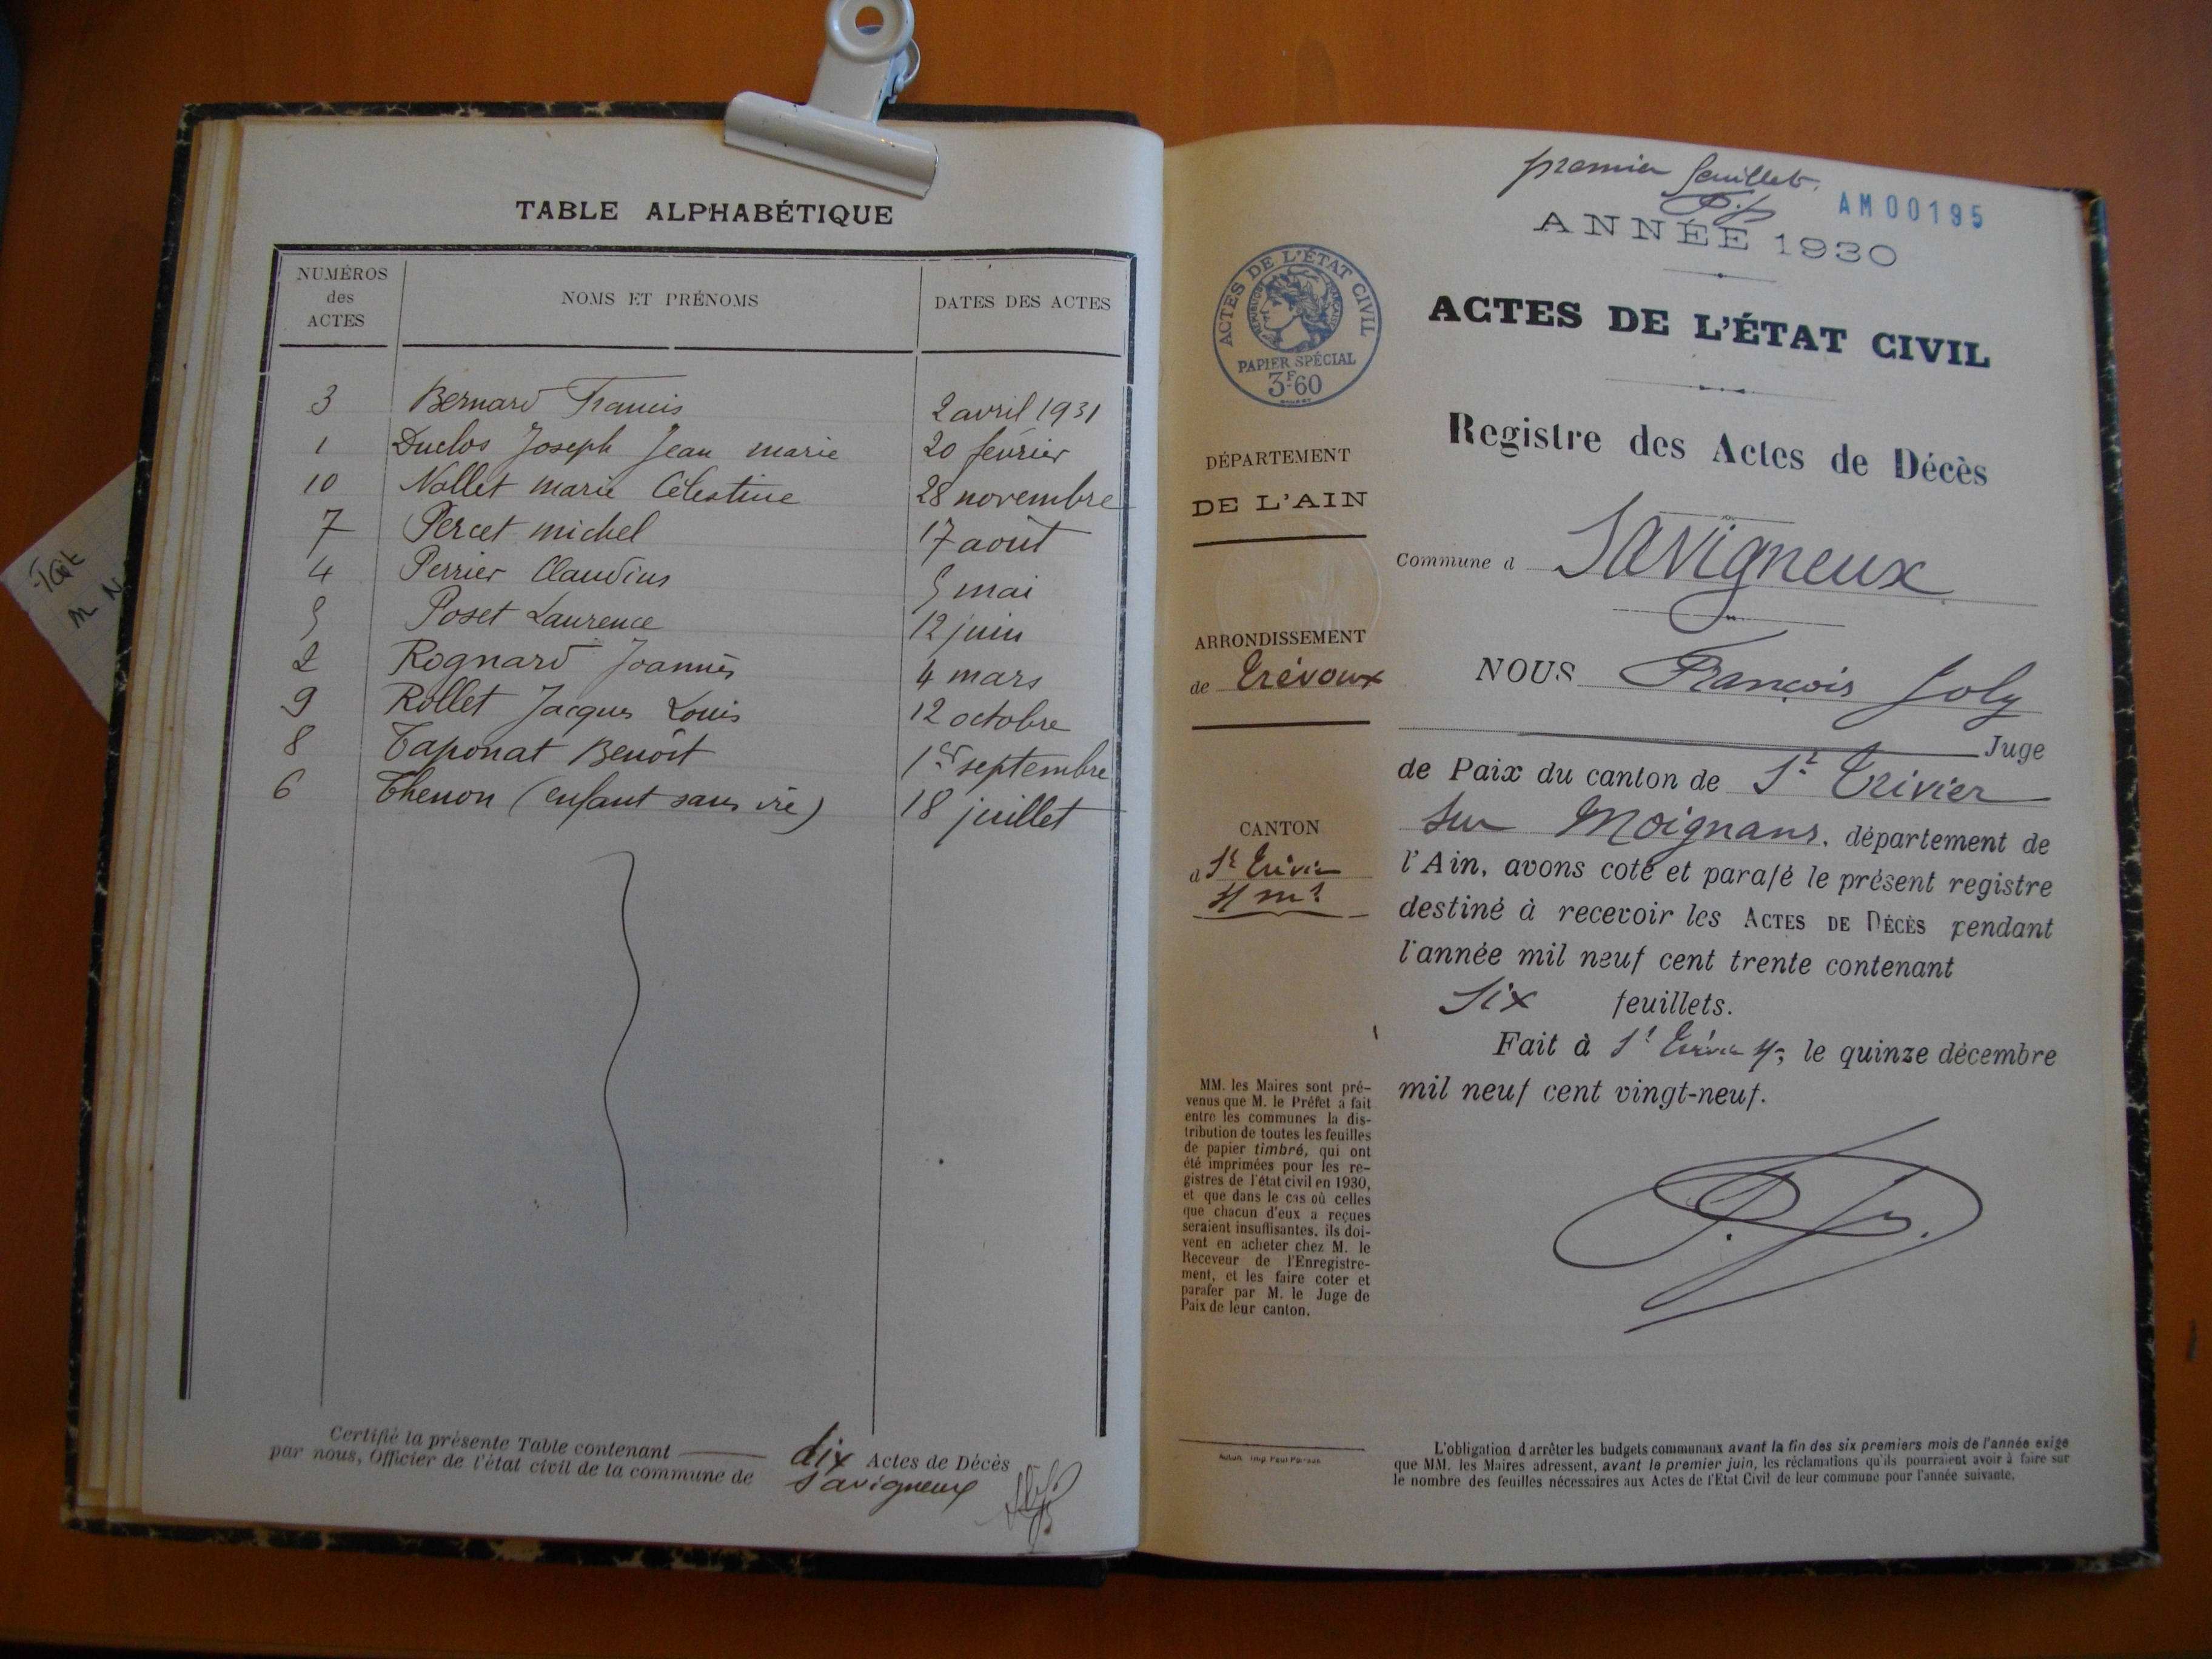 TABLE ALPHABÉTIQUE
NUMÉROS
des
ACTES
NOMS ET PRÉNOMS
DATES DES ACTES
3 Bernard Francis 2 avril 1931
1 Duclos Joseph Jean marie 20 février
10 Nallet marie Célestine 28 novembre
7 Percet michel 17 août
4 Perrier Claudius 5 mai
5 Poset Laurence 12 juin
2 Rognard Joannès 4 mars
9 Rollet Jacques Louis 12 octobre
8 Taponat Benoît 1er septembre
6 Thenon (enfant sans vie) 18 juillet
Certifié la présente Table contenant dix Actes de Décès
par nous, Officier de l'état civil de la commune de Savigneux
Tait
premier feuillet.
AM00195
ANNÉE 1930
ACTES DE L'ÉTAT CIVIL
RÉPUBLIQUE FRANÇAISE
PAPIER SPÉCIAL
3F60
ACTES DE L'ÉTAT CIVIL
Registre des Actes de Décès
DÉPARTEMENT
DE L'AIN
Commune d Savigneux
ARRONDISSEMENT
de Trévoux
CANTON
d St Trivier
s/ ms
NOUS François Joly
Juge
de Paix du canton de St Trivier
sur Moignans, département de
l'Ain, avons coté et parafé le présent registre
destiné à recevoir les ACTES DE DÉCÈS pendant
l'année mil neuf cent trente contenant
Six feuillets.
Fait à St Trivier s/ , le quinze décembre
mil neuf cent vingt-neuf.
MM. les Maires sont pré-
venus que M. le Préfet a fait
entre les communes la dis-
tribution de toutes les feuilles
de papier timbré, qui ont
été imprimées pour les re-
gistres de l'état civil en 1930,
et que dans le cas où celles
que chacun d'eux a reçues
seraient insuffisantes, ils doi-
vent en acheter chez M. le
Receveur de l'Enregistre-
ment, et les faire coter et
parafer par M. le Juge de
Paix de leur canton.
L'obligation d'arrêter les budgets communaux avant la fin des six premiers mois de l'année exige
que MM. les Maires adressent, avant le premier juin, les réclamations qu'ils pourraient avoir à faire sur
le nombre des feuilles nécessaires aux Actes de l'Etat Civil de leur commune pour l'année suivante.